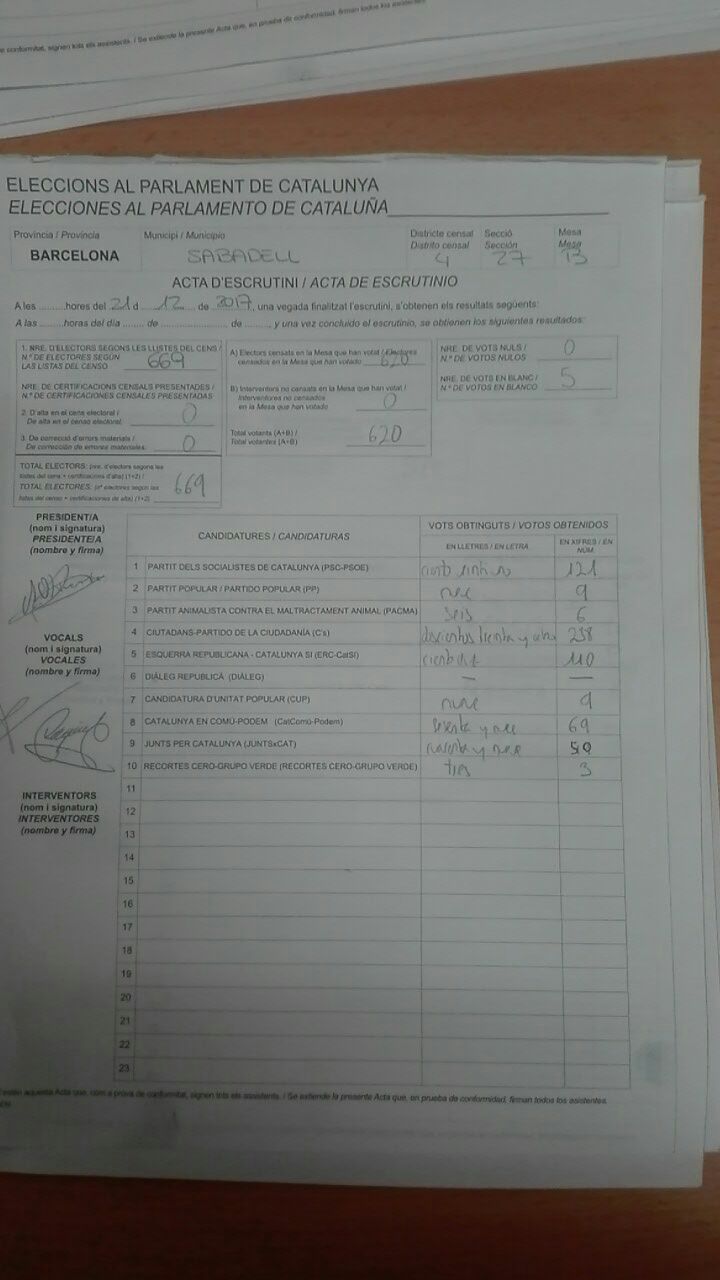 e conformitat, signen tots els assistents. / Se extiende la presente Acta que, en prueba de conformidad, firman todos los asistentes
ELECCIONS AL PARLAMENT DE CATALUNYA
ELECCIONES AL PARLAMENTO DE CATALUÑA
Província / Provincia Municipi / Municipio Districte censal Secció Mesa
Distrito censal Sección Mesa
BARCELONA SABADELL 4 27 B
ACTA D'ESCRUTINI / ACTA DE ESCRUTINIO
A les ..........hores del 21 d ... 12 ... de 2017, una vegada finalitzat l'escrutini, s'obtenen els resultats següents:
A las ..........horas del día ........ de ........................ de ........, y una vez concluido el escrutinio, se obtienen los siguientes resultados:
1. NRE. D'ELECTORS SEGONS LES LLISTES DEL CENS /
N.º DE ELECTORES SEGÚN
LAS LISTAS DEL CENSO 669
NRE. DE CERTIFICACIONS CENSALS PRESENTADES /
N.º DE CERTIFICACIONES CENSALES PRESENTADAS
2. D'alta en el cens electoral /
De alta en el censo electoral: 0
3. De correcció d'errors materials /
De corrección de errores materiales: 0
TOTAL ELECTORS: (nre. d'electors segons les
llistes del cens + certificacions d'alta) (1+2) /
TOTAL ELECTORES: (nº electores según las
listas del censo + certificaciones de alta) (1+2) 669
A) Electors censats en la Mesa que han votat / Electores
censados en la Mesa que han votado 620
B) Interventors no censats en la Mesa que han votat /
Interventores no censados
en la Mesa que han votado 0
Total votants (A+B) /
Total votantes (A+B) 620
NRE. DE VOTS NULS /
N.º DE VOTOS NULOS 0
NRE. DE VOTS EN BLANC /
N.º DE VOTOS EN BLANCO 5
PRESIDENT/A
(nom i signatura)
PRESIDENTE/A
(nombre y firma)
VOCALS
(nom i signatura)
VOCALES
(nombre y firma)
INTERVENTORS
(nom i signatura)
INTERVENTORES
(nombre y firma)
CANDIDATURES / CANDIDATURAS VOTS OBTINGUTS / VOTOS OBTENIDOS
EN LLETRES / EN LETRA EN XIFRES / EN NÚM.
1 PARTIT DELS SOCIALISTES DE CATALUNYA (PSC-PSOE) 121
2 PARTIT POPULAR / PARTIDO POPULAR (PP) 9
3 PARTIT ANIMALISTA CONTRA EL MALTRACTAMENT ANIMAL (PACMA) seis 6
4 CIUTADANS-PARTIDO DE LA CIUDADANÍA (C's) doscientos treinta y ocho 238
5 ESQUERRA REPUBLICANA - CATALUNYA SÍ (ERC-CatSí) 110
6 DIÀLEG REPUBLICÀ (DIÀLEG) — —
7 CANDIDATURA D'UNITAT POPULAR (CUP) nueve 9
8 CATALUNYA EN COMÚ-PODEM (CatComú-Podem) 69
9 JUNTS PER CATALUNYA (JUNTSxCAT)
10 RECORTES CERO-GRUPO VERDE (RECORTES CERO-GRUPO VERDE) tres 3
11
12
13
14
15
16
17
18
19
20
21
22
23
estén aquesta Acta que, com a prova de conformitat, signen tots els assistents. / Se extiende la presente Acta que, en prueba de conformidad, firman todos los asistentes.